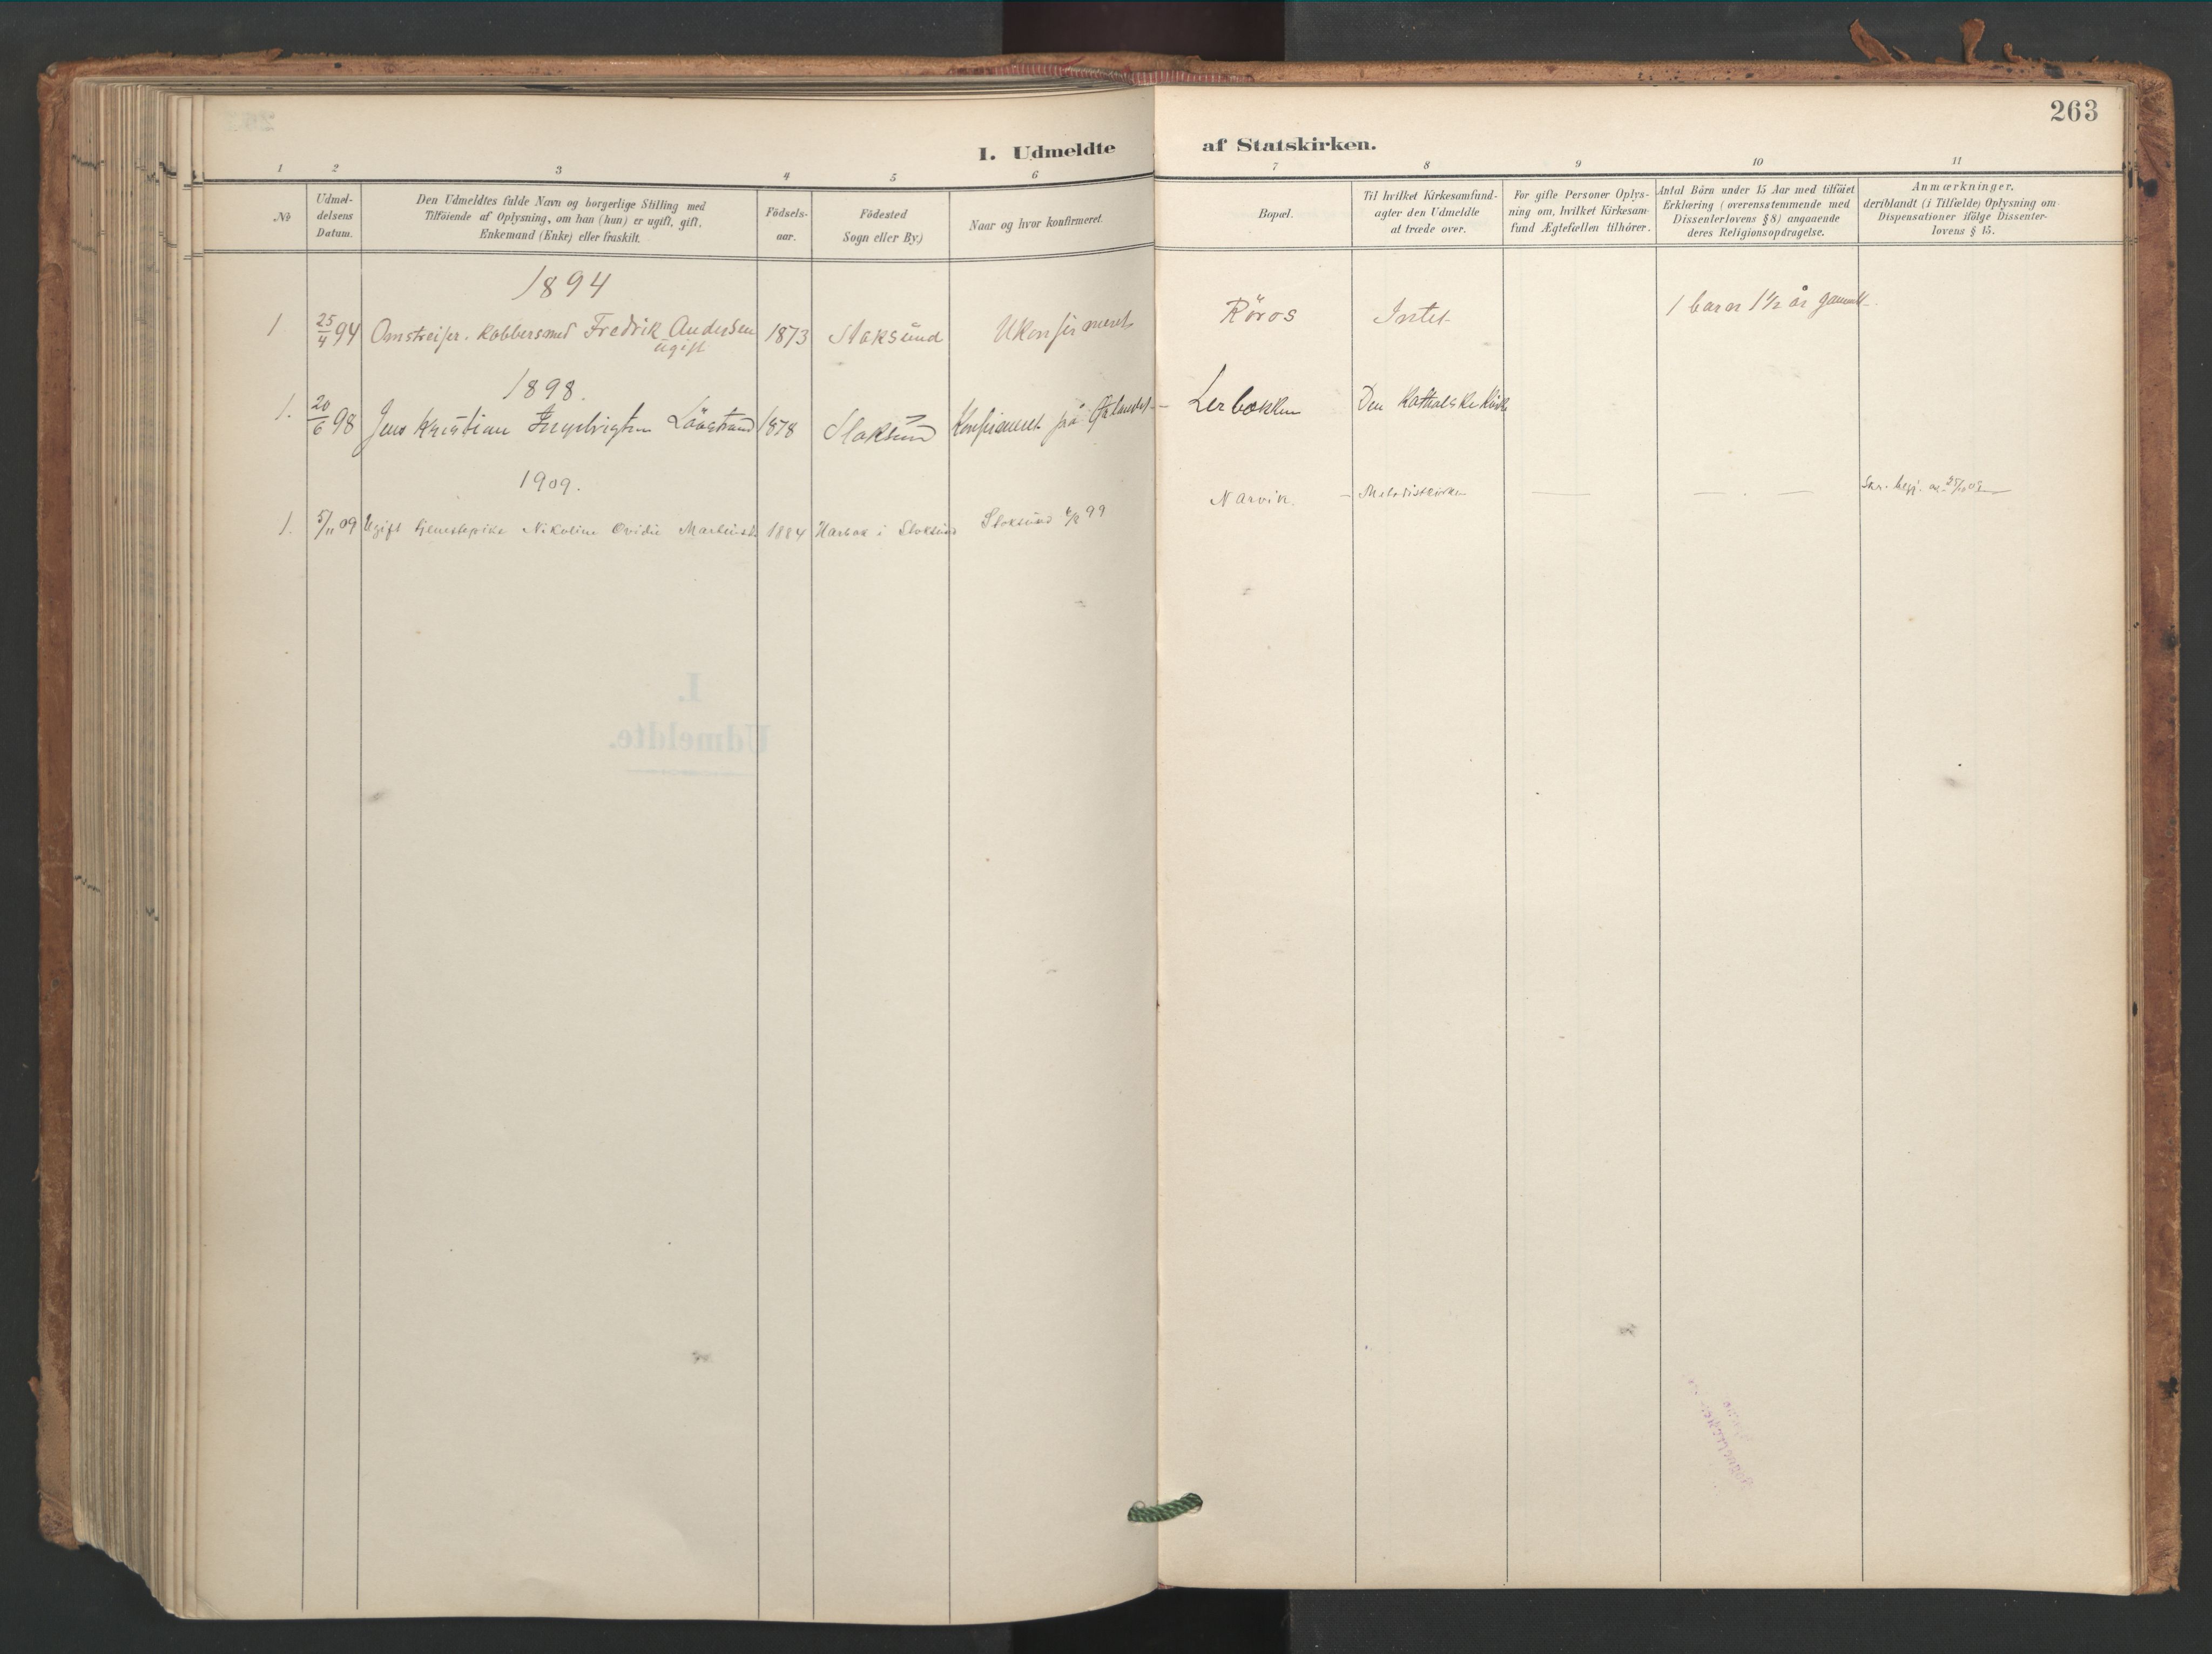 263
I. Udmeldte af Statskirken.
1 2 3 4 5 6 7 8 9 10 11
№
Udmel-
delsens
Datum.
Den Udmeldtes fulde Navn og borgerlige Stilling med
Tilföiende af Oplysning, om han (hun) er ugift, gift,
Enkemand (Enke) eller fraskilt.
Födsels-
aar.
Födested
Sogn eller By)
Naar og hvor konfirmeret.
Bopæl.
Til hvilket Kirkesamfund-
agter den Udmeldte
at træde over.
For gifte Personer Oplys-
ning om, hvilket Kirkesam-
fund Ægtefællen tilhörer.
Antal Börn under 15 Aar med tilföiet
Erklæring (overensstemmende med
Dissenterlovens § 8) angaaende
deres Religionsopdragelse.
Anmærkninger,
deriblandt (i Tilfælde) Oplysning om
Dispensationer ifölge Dissenter-
lovens § 15.
1894
1 25/4 94 Omstreifer. Kobbersmed Fredrik Andersen 1873 Stoksund Ukonfirmeret Röros Intet 1 barn 1 1/2 år gammelt
ugift
1898.
1. 20/6 98 Jens Kristian 1878 Stoksund Konfirmeret på Lerbækken Den Katholske Kirke
1909.
1. 5/11 09 Ugift tjenestepike Nikoline Ovidie 1884 Harbak i Stoksund Stoksund 99 Narvik. — Metodistkirken — — . —
I.
Udmeldte.